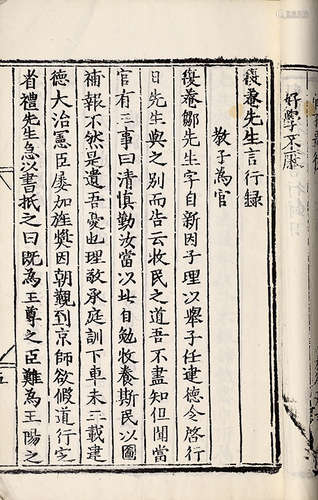 好學不厭
復菴先生言行錄
教子為官
復菴鄒先生字自新因子理以舉子任建德令啓行
日先生與之別而告云牧民之道吾不盡知但聞當
官有三事曰清慎勤汝當以此自勉牧養斯民以圖
補報不然是遺吾憂也理敬承庭訓下車未三載建
德大治憲臣屢加旌奬因朝覲到京師欲假道行定
省禮先生急書抵之曰既為王尊之臣難為王陽之
五